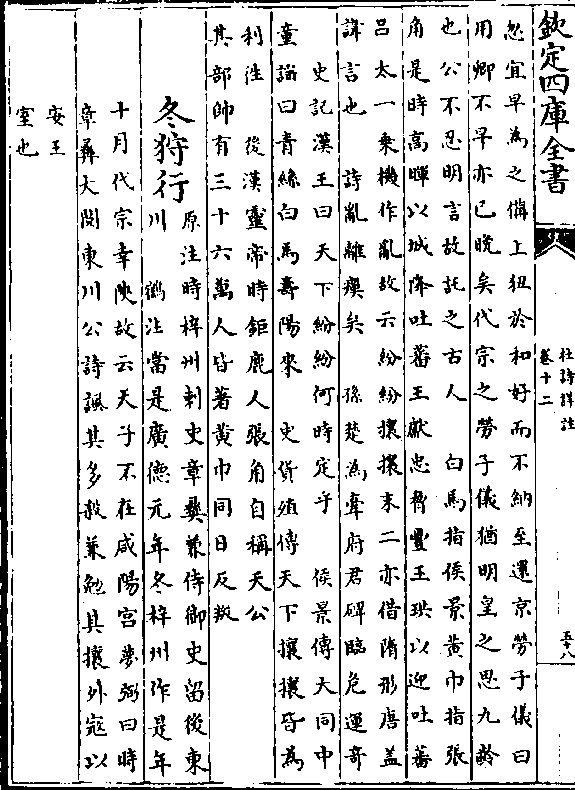 欽定四庫全書
杜詩詳註
卷十二
五十八
忽宜早為之備上狃於和好而不納至還京勞子儀曰
用卿不早亦已晚矣代宗之勞子儀猶明皇之思九齡
也公不忍明言故託之古人　白馬指侯景黃巾指張
角是時高暉以城降吐蕃王獻忠脅豐王珙以迎吐蕃
呂太一乘機作亂故云紛紛攘攘末二亦借隋形唐蓋
諱言也　詩亂離瘼矣　孫楚為牽府君碑臨危運奇
史記漢王曰天下紛紛何時定乎　侯景傳大同中
童謠曰青絲白馬壽陽來　史貨殖傳天下攘攘皆為
利徃　後漢靈帝時鉅鹿人張角自稱天公
其部帥有三十六萬人皆著黃巾同日反叛
冬狩行
原注時梓州刺史章彝兼侍御史留後東
川　鶴注當是廣德元年冬梓州作是年
十月代宗幸陜故云天子不在咸陽宮夢弼曰時
章彝大閱東川公詩諷其多殺兼勉其攘外寇以
安王
室也